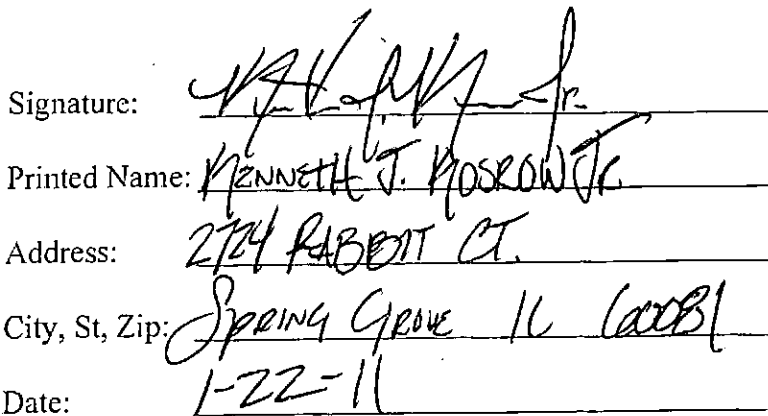 Signature:
Printed Name: KENNETH J. KOSROW JR.
Address: 2724 RABBIT CT.
City, St, Zip: SPRING GROVE IL 60081
Date: 1-22-11